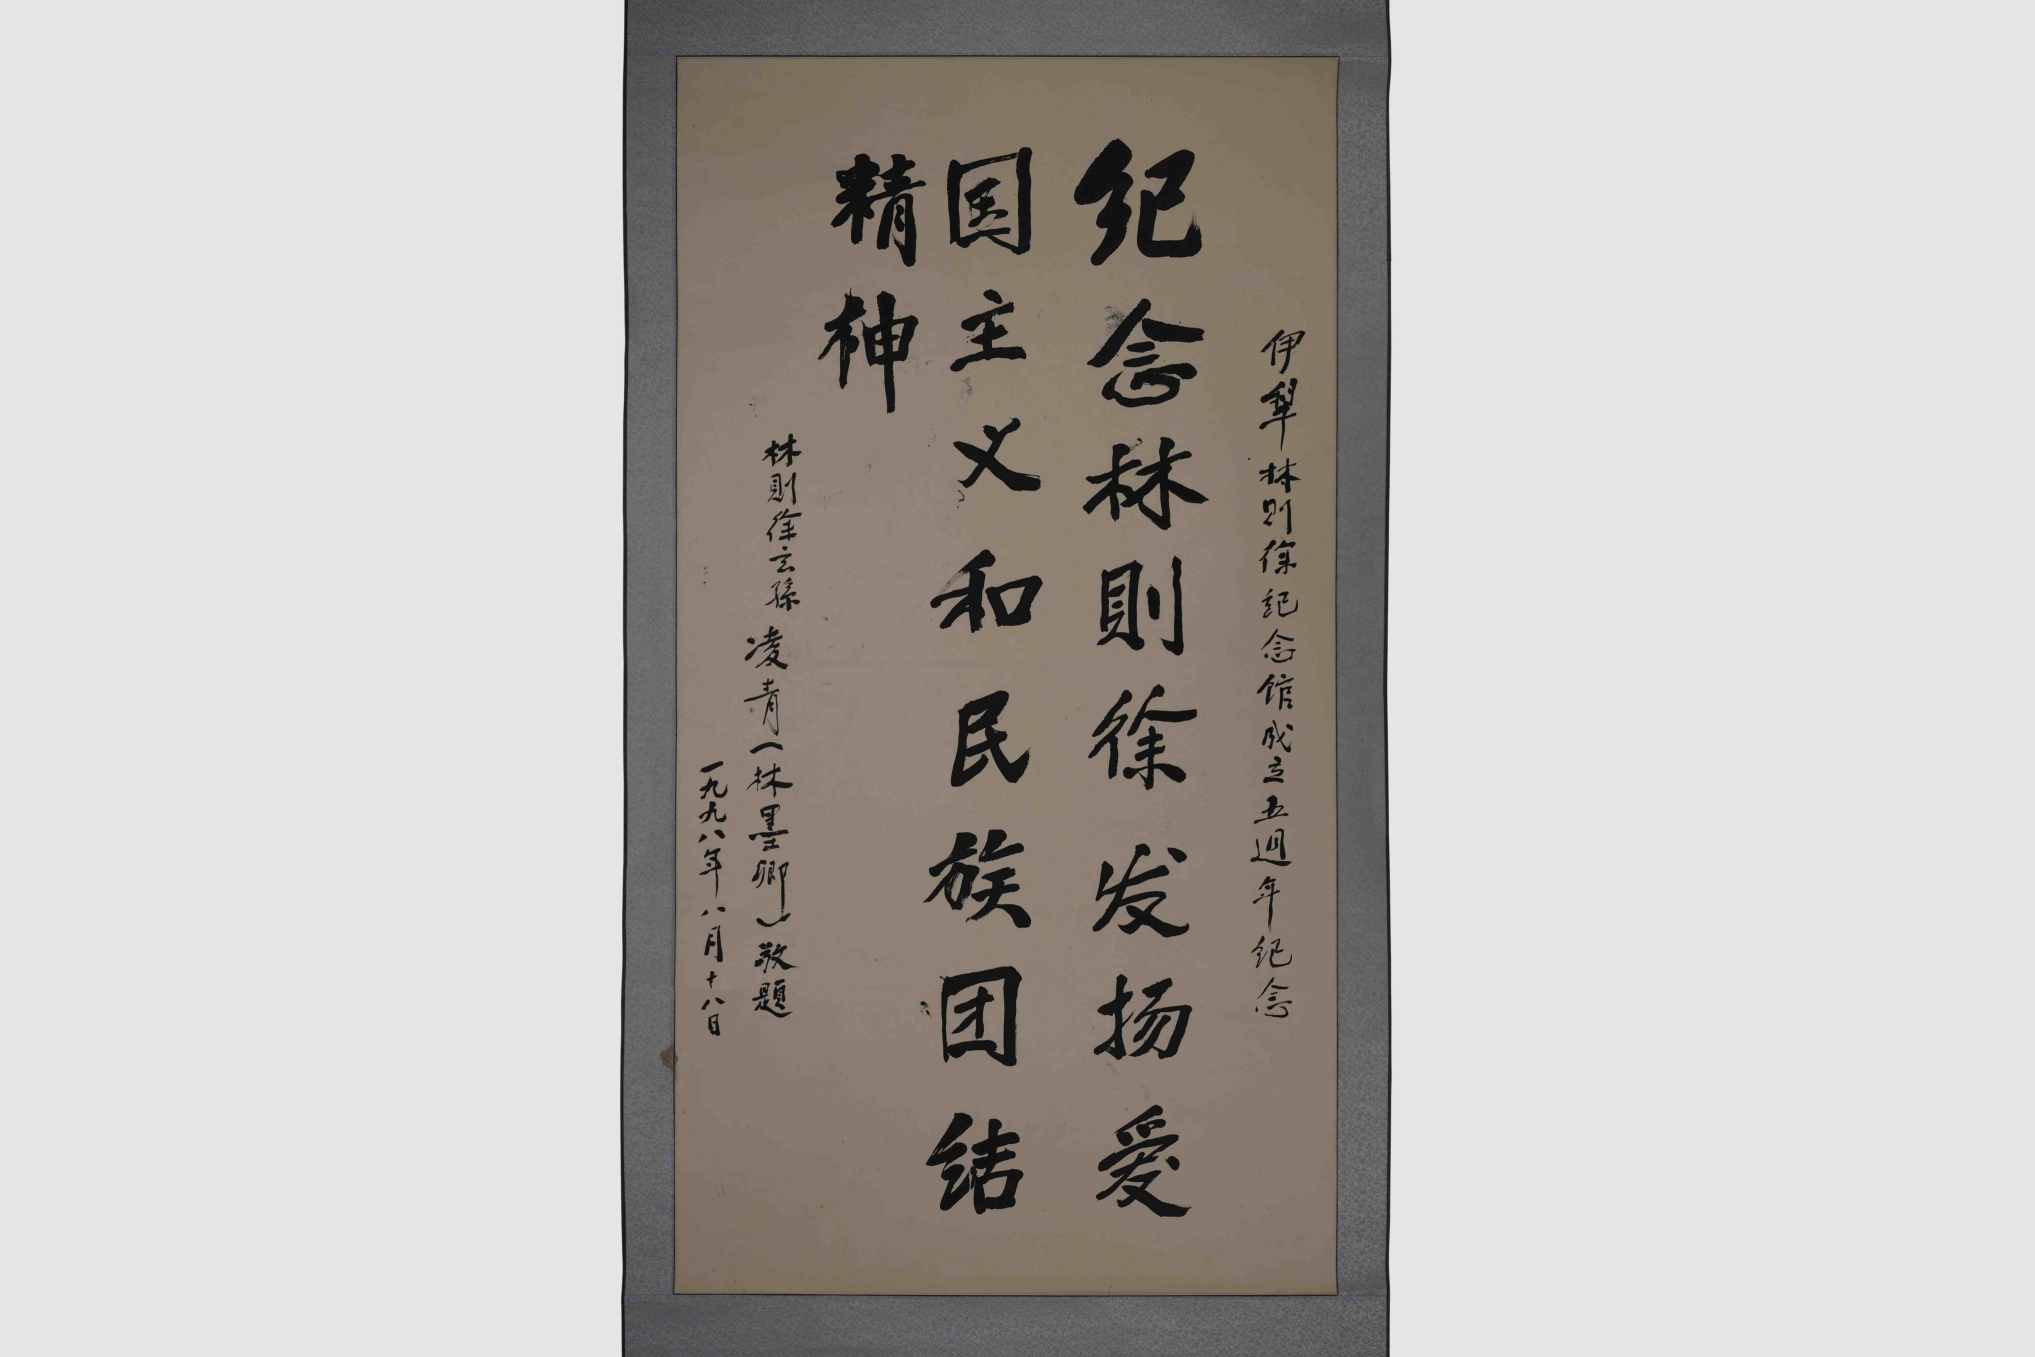 伊犁林則徐紀念馆成立五週年纪念
纪念林則徐发扬爱
国主义和民族团结
精神
林則徐玄孫凌青(林墨卿)敬題
一九九八年八月十八日